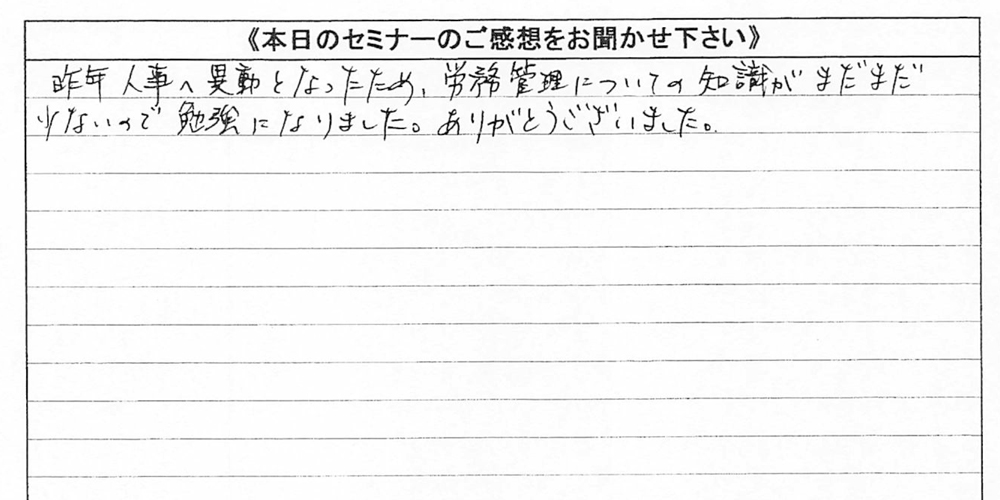 《本日のセミナーのご感想をお聞かせ下さい》
昨年人事へ異動となったため、労務管理についての知識がまだまだ
少ないので勉強になりました。ありがとうございました。